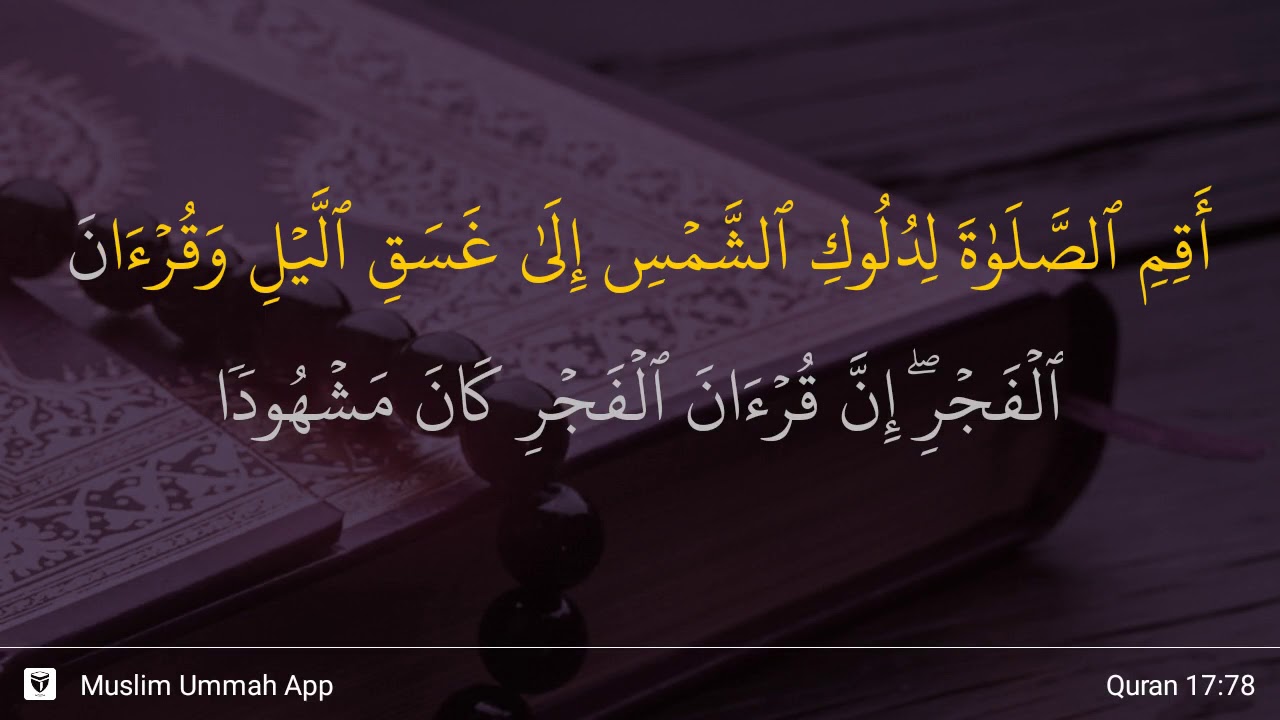 أَقِمِ ٱلصَّلَوٰةَ لِدُلُوكِ ٱلشَّمْسِ إِلَىٰ غَسَقِ ٱلَّيْلِ وَقُرْءَانَ
ٱلْفَجْرِ ۖ إِنَّ قُرْءَانَ ٱلْفَجْرِ كَانَ مَشْهُودًا
Muslim Ummah App
Quran 17:78